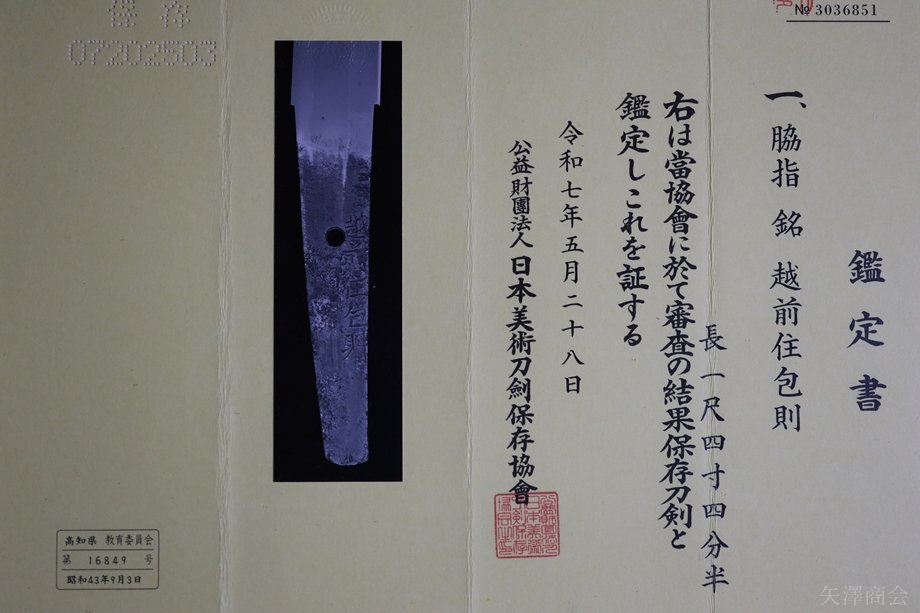 № 3036851
鑑定書
一、脇指 銘 越前住包則
長一尺四寸四分半
右は當協會に於て審査の結果保存刀剣と
鑑定しこれを証する
令和七年五月二十八日
公益財團法人 日本美術刀劍保存協會
越前住包則
保存
07202503
高知県 教育委員会
第 16849 号
昭和43年9月3日
矢澤商会